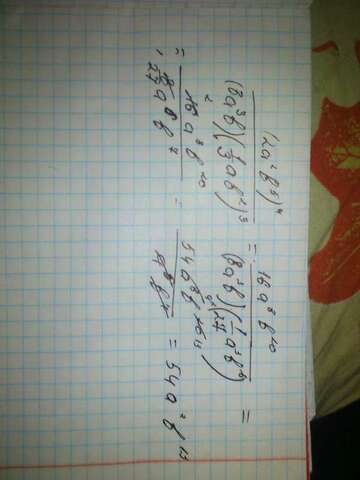 (2a² b⁵)⁴ / (8a³b)(⅓ab²)³ = 16a⁸b²⁰ / (8a³b)(1/27 a³b⁶) =
= 16a⁸b²⁰ / 8/27 a⁶b⁷ = 54a⁸b²⁰ / a⁶b⁷ = 54a²b¹³